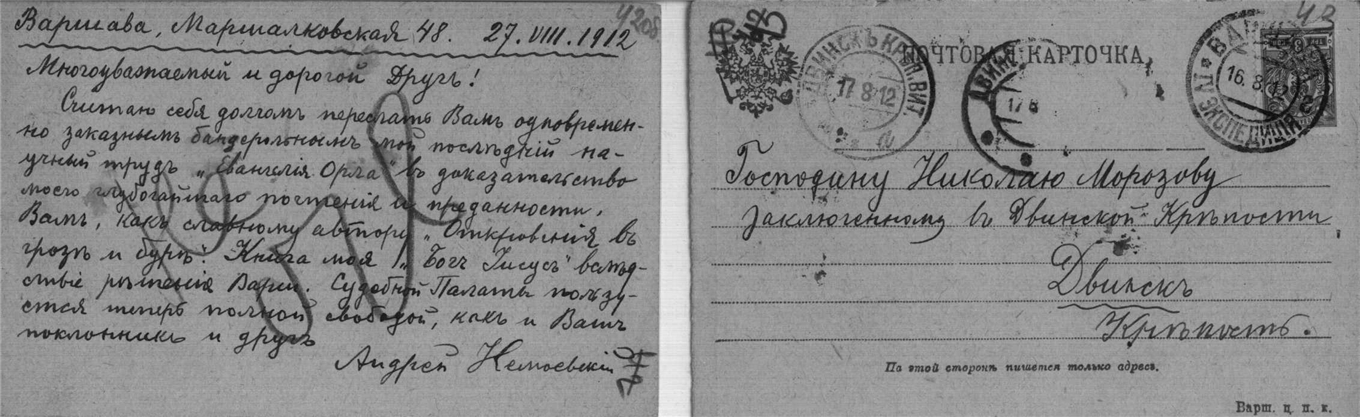 Варшава, Маршалковская 48. 27.VIII.1912
Многоуважаемый и дорогой Другъ!
Считаю себя долгомъ переслать Вамъ одновремен-
но заказнымъ бандерольнымъ мой послѣдній на-
учный трудъ „Евангелія Орла" въ доказательство
моего глубочайшаго почтенія и преданности,
Вамъ, какъ славному автору „Откровенія въ
грозѣ и бурѣ". Книга моя „Богъ Іисусъ" вслѣд-
ствіе рѣшенія Варш. Судебной Палаты пользу-
ется теперь полной свободой, какъ и Вашъ
поклонникъ и другъ
Андрей Немоевскій
4208
ПОЧТОВАЯ КАРТОЧКА
ДВИНСКЪ ВИТ.
17 8 12
ДВИНСКЪ
17 8
ВАРШАВА
16.8.12
ЭКСПЕДИЦІЯ
Господину Николаю Морозову
заключенному въ Двинской Крѣпости
Двинскъ
Крѣпость.
На этой сторонѣ пишется только адресъ.
Варш. ц. п. к.